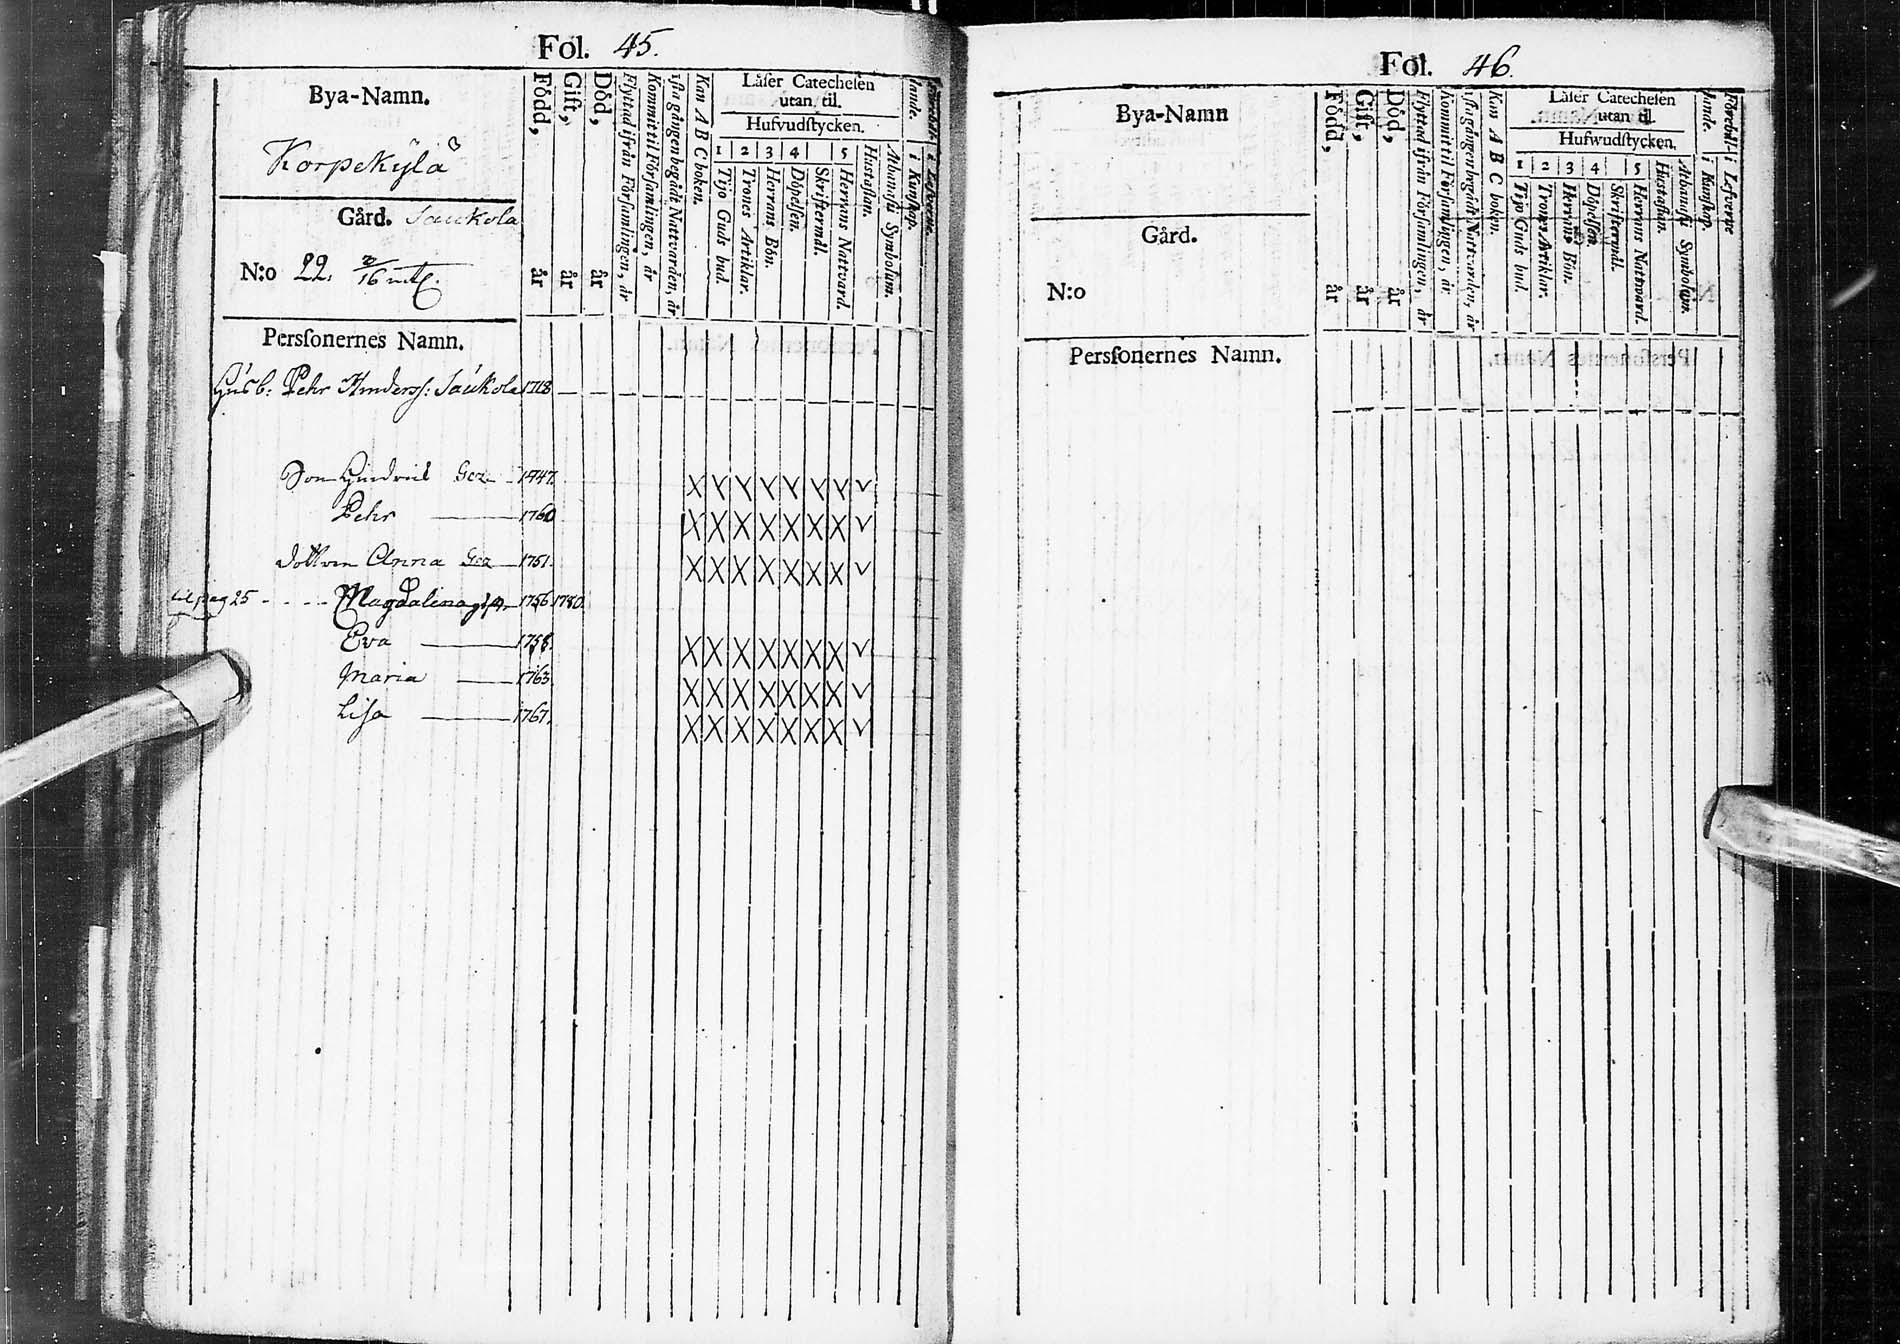 Fol. 45.
Bya-Namn.
Korpekylä
Gård. Saukola
N:o 22.
Persſonernes Namn.
Född, år
Gift, år
Död, år
Flyttad ifrån Förſamlingen, år
Kommit til Förſamlingen, år
iſta gången begådt Nattvarden, år
Kan A B C boken.
Läſer Catecheſen
utan til.
Hufvudſtycken.
1 2 3 4 5
Tijo Guds bud.
Trones Artiklar.
Herrans Bön.
Döpelſen.
Skriftermål.
Herrans Nattvard.
Huſtaflan.
Athanaſii Symbolum.
i Kunſkap.
i Lefverne.
Husb: Pehr Anderss: Saukola 1718
Son Hindric 1747.
Pehr 1760
Dottren Anna 1751.
pag 25 Magdalena 1756 1780.
Eva 1758.
Maria 1763.
Lisa 1767.
Fol. 46.
Bya-Namn
Gård.
N:o
Persſonernes Namn.
Född, år
Gift, år
Död, år
Flyttad ifrån Förſamlingen, år
Kommit til Förſamlingen, år
iſta gången begådt Nattvarden, år
Kan A B C boken.
Läſer Catecheſen
utan til.
Hufwudſtycken.
1 2 3 4 5
Tijo Guds bud.
Trones Artiklar.
Herrans Bön.
Döpelſen.
Skriftermål.
Herrans Nattward.
Huſtaflan.
Athanaſii Symbolum.
Förebål-
jande.
i Kunſkap.
i Lefverne